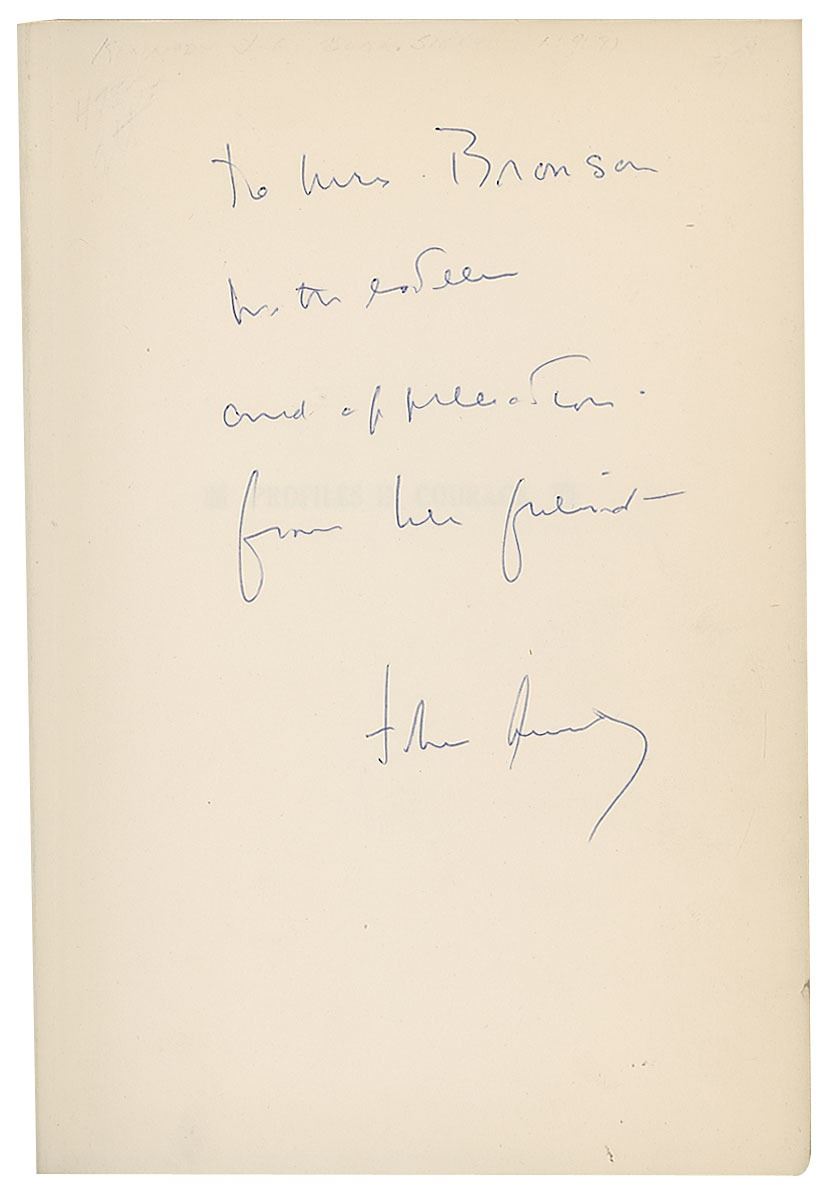 To Mrs. Bronson
with esteem
and appreciation.
from her friend
PROFILES IN COURAGE
John Kennedy